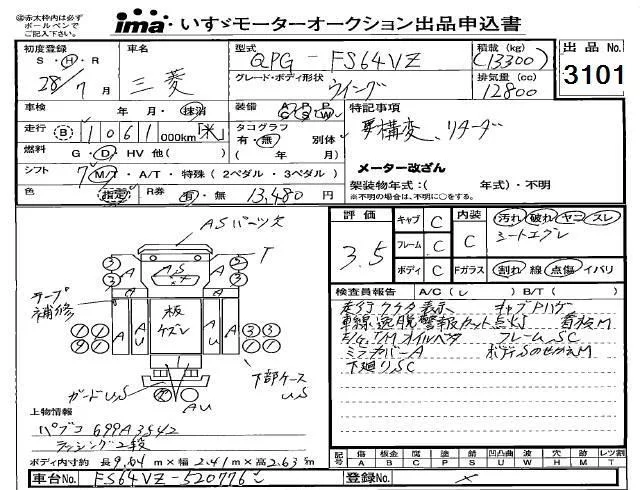 ㊟赤太枠内は必ず
ボールペンで
ご記入下さい。
ima いすゞモーターオークション出品申込書
初度登録 S・H・R 28/7月
車名 三菱
型式 QPG-FS64VZ
グレード・ボディ形状 ウイング
積載(kg) (13300)
排気量(cc) 12800
出品No. 3101
車検 年・月・抹消
装備 A C P S P W
特記事項
要構変、リターダ
走行 B 1061 000km「米」
タコグラフ 有・無 別体 ( 年 月)
燃料 G・D・HV 他( )
メーター改ざん
シフト 7 M/T・A/T・特殊(2ペダル・3ペダル)
架装物年式:( 年式)・不明
※不明の場合は、不明に○をする。
色 指定 R券 有・無 13,480円
評価 3.5
キャブ C 内装 C 汚れ 破れ ヤニ スレ
フレーム C シートエグレ
ボディ C Fガラス C 割れ 線 点傷 イバリ
ASパーツ欠
T
テープ補修
板ケズレ
ガードU,S
下部ケースU,S
AU
検査員報告 A/C( レ ) B/T( )
走行クケタ表示 キャブドハゲ
車線逸脱警報カット点灯 首枝M
E/g,T/Mオイルベタ フレームSC
ミラーカバーA ボディSのせかえM
下廻りSC
上物情報
パブコ 699A3S42
ラッシング2段
ボディ内寸約 長9.64m×幅2.41m×高2.63m
記号 傷A 板金B 腐C 塗P 錆S 凹凸曲U 波W 穴H 跡M レツ割T
車台No. FS64VZ-520776
登録No. ×